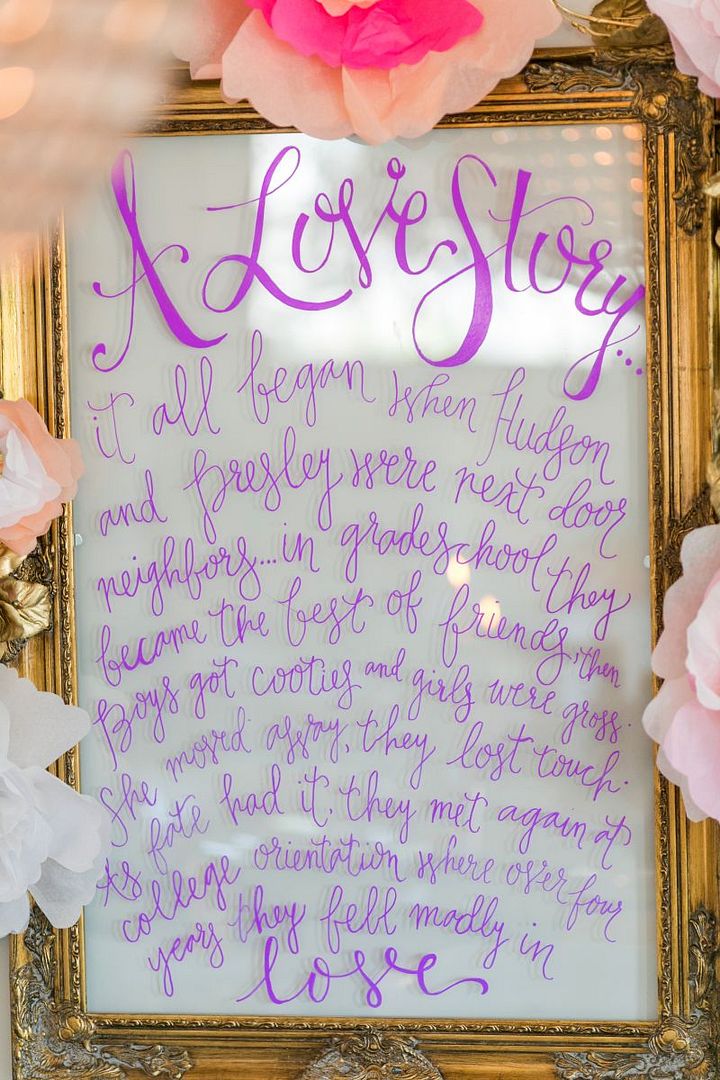 A Love Story...
it all began when Hudson
and Presley were next door
neighbors...in gradeschool they
became the best of friends, then
Boys got cooties and girls were gross.
She moved away, they lost touch.
As fate had it, they met again at
college orientation where over four
years they fell madly in
love